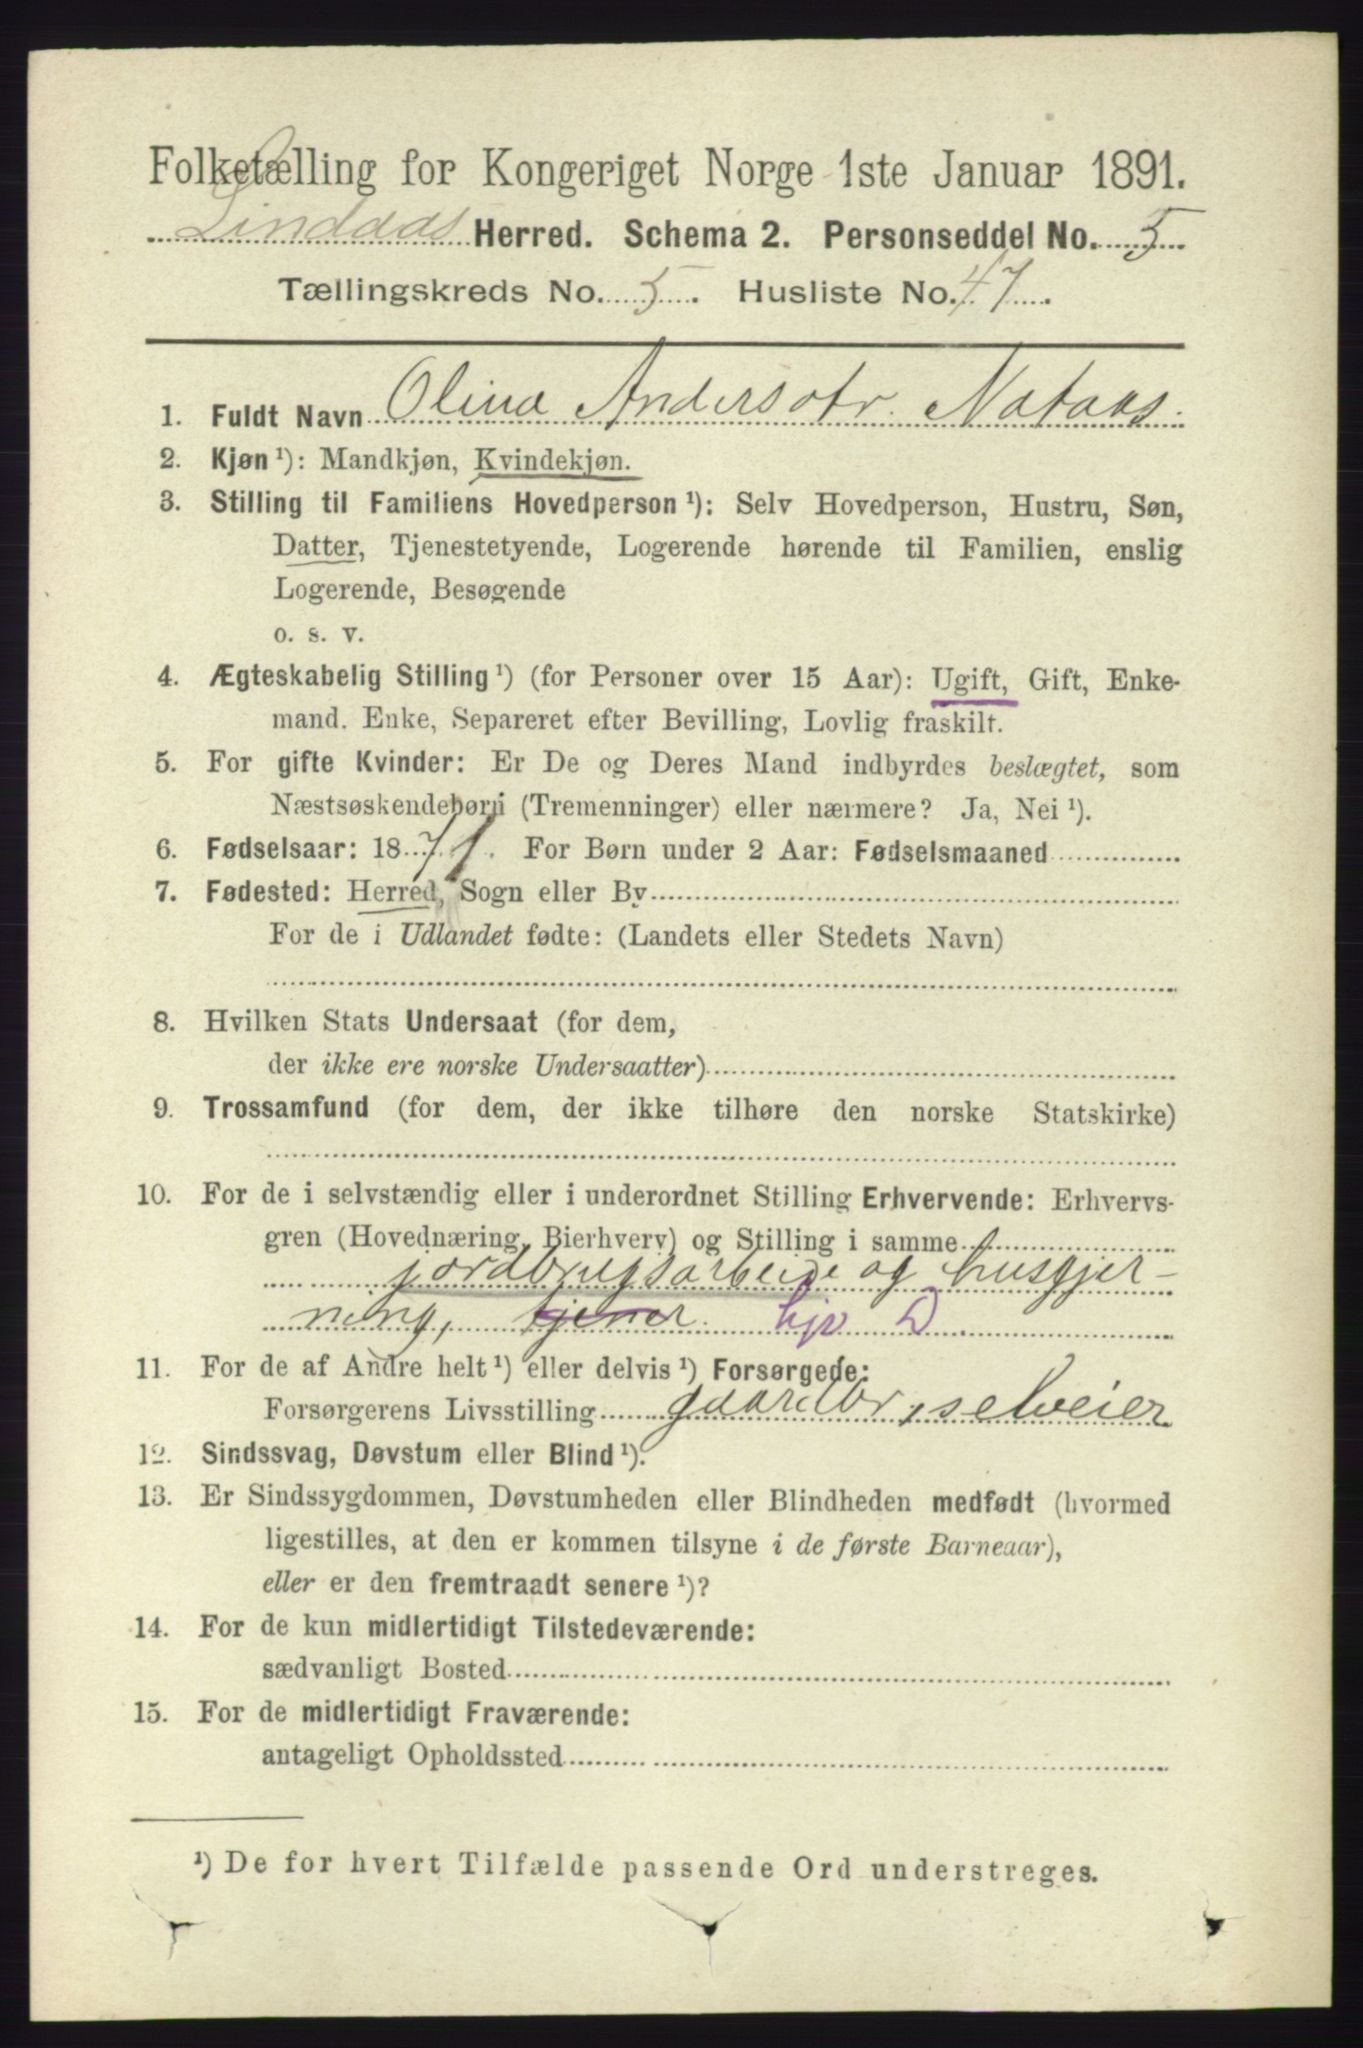 Folketælling for Kongeriget Norge 1ste Januar 1891.
Lindaas Herred. Schema 2. Personseddel No. 5
Tællingskreds No. 5. Husliste No. 47.
1. Fuldt Navn Olina Andersdtr. Nataas.
2. Kjøn ¹): Mandkjøn, Kvindekjøn.
3. Stilling til Familiens Hovedperson ¹): Selv Hovedperson, Hustru, Søn,
Datter, Tjenestetyende, Logerende hørende til Familien, enslig
Logerende, Besøgende
o. s. v.
4. Ægteskabelig Stilling ¹) (for Personer over 15 Aar): Ugift, Gift, Enke-
mand. Enke, Separeret efter Bevilling, Lovlig fraskilt.
5. For gifte Kvinder: Er De og Deres Mand indbyrdes beslægtet, som
Næstsøskendebørn (Tremenninger) eller nærmere? Ja, Nei ¹).
6. Fødselsaar: 1871. For Børn under 2 Aar: Fødselsmaaned
7. Fødested: Herred, Sogn eller By
For de i Udlandet fødte: (Landets eller Stedets Navn)
8. Hvilken Stats Undersaat (for dem,
der ikke ere norske Undersaatter)
9. Trossamfund (for dem, der ikke tilhøre den norske Statskirke)
10. For de i selvstændig eller i underordnet Stilling Erhvervende: Erhvervs-
gren (Hovednæring, Bierhverv) og Stilling i samme
jordbrugsarbeide og husgjer-
ning, tjener hjv D
11. For de af Andre helt ¹) eller delvis ¹) Forsørgede:
Forsørgerens Livsstilling gaardbr, selveier
12. Sindssvag, Døvstum eller Blind ¹).
13. Er Sindssygdommen, Døvstumheden eller Blindheden medfødt (hvormed
ligestilles, at den er kommen tilsyne i de første Barneaar),
eller er den fremtraadt senere ¹)?
14. For de kun midlertidigt Tilstedeværende:
sædvanligt Bosted
15. For de midlertidigt Fraværende:
antageligt Opholdssted
¹) De for hvert Tilfælde passende Ord understreges.